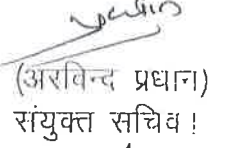 (अरविन्द प्रधान)
संयुक्त सचिव!